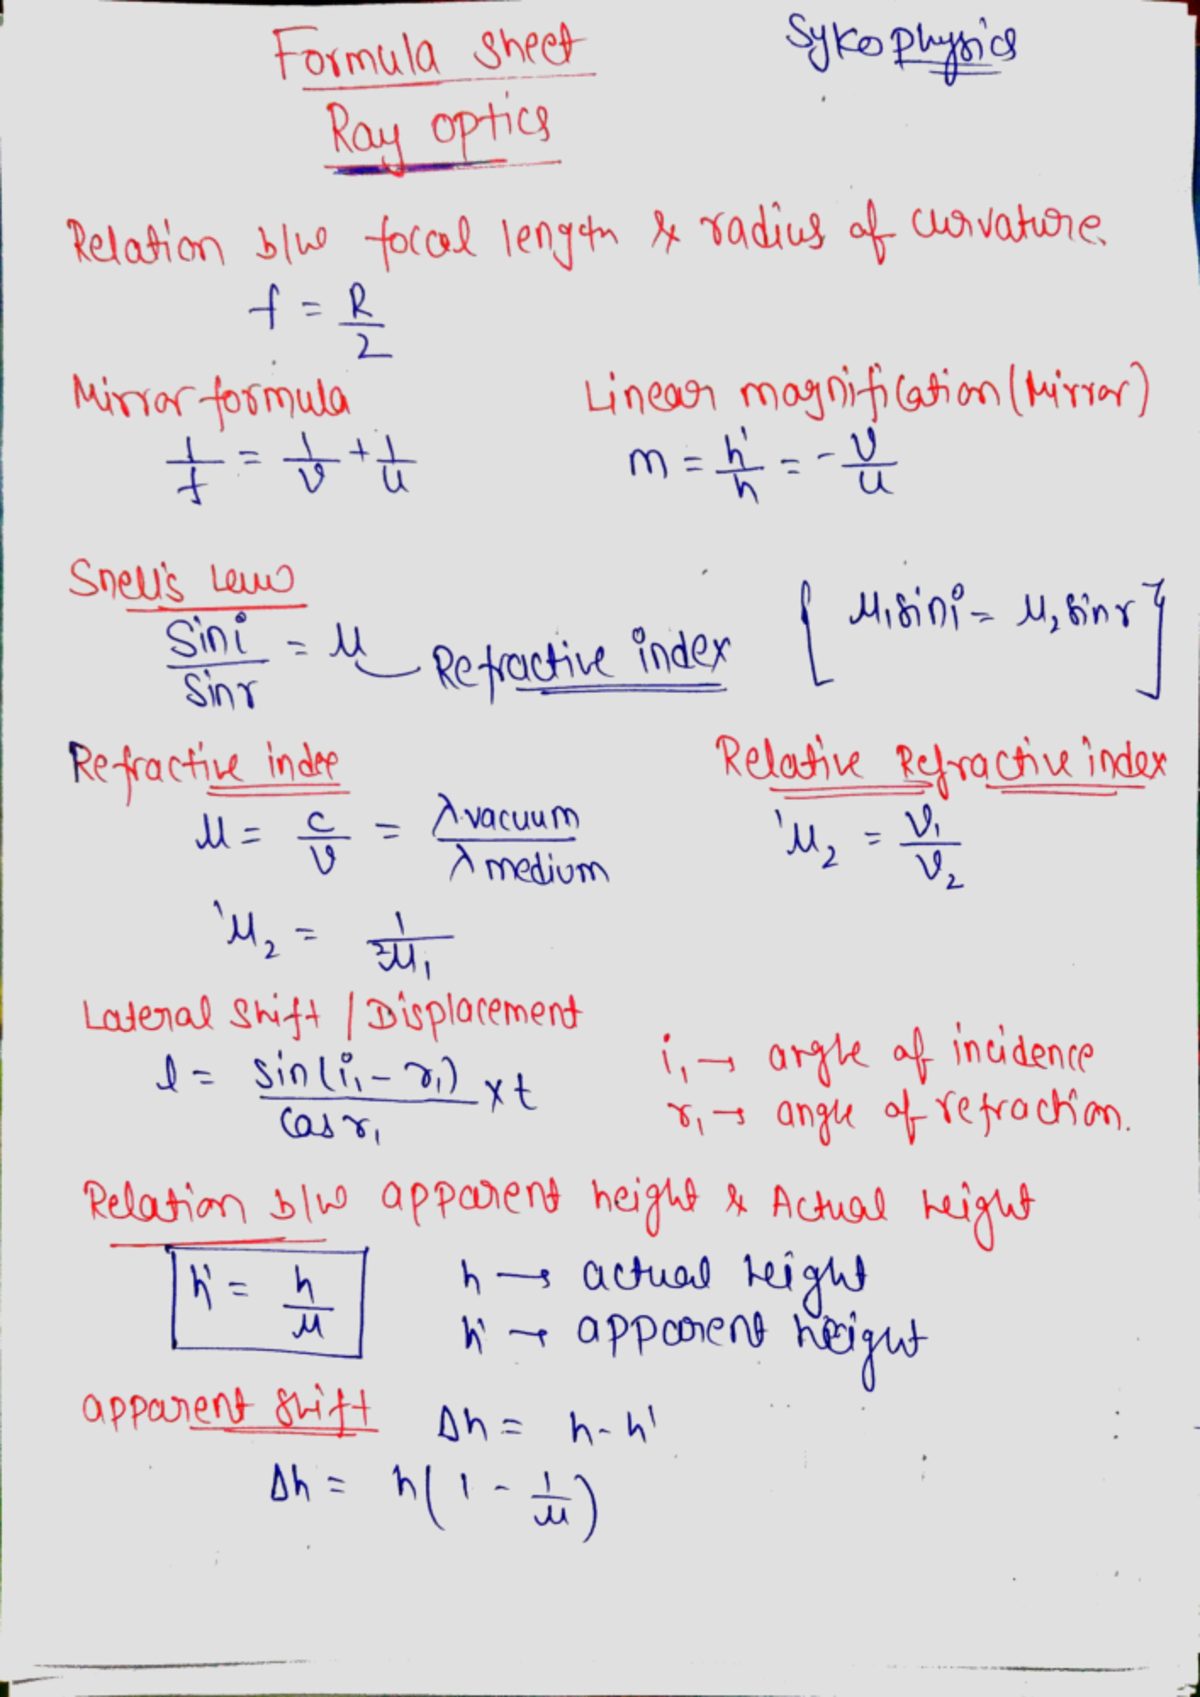 Formula sheet
Sykophysics
Ray optics
Relation b/w foccal length & radius of curvature.
f = R/2
Mirror formula
1/f = 1/v + 1/u
Linear magnification (Mirror)
m = h'/h = -v/u
Snell's Law
sin i / sin r = μ Refractive index
[ μ₁ sin i = μ₂ sin r ]
Refractive inde
μ = c/v = λ vacuum / λ medium
¹μ₂ = 1/²μ₁
Relative Refractive index
¹μ₂ = v₁/v₂
Lateral shift / Displacement
l = sin(i₁ - r₁) / cos r₁ × t
i₁ → angle of incidence
r₁ → angle of refraction.
Relation b/w apparent height & Actual height
h' = h/μ
h → actual height
h' → apparent height
apparent shift Δh = h - h'
Δh = h(1 - 1/μ)